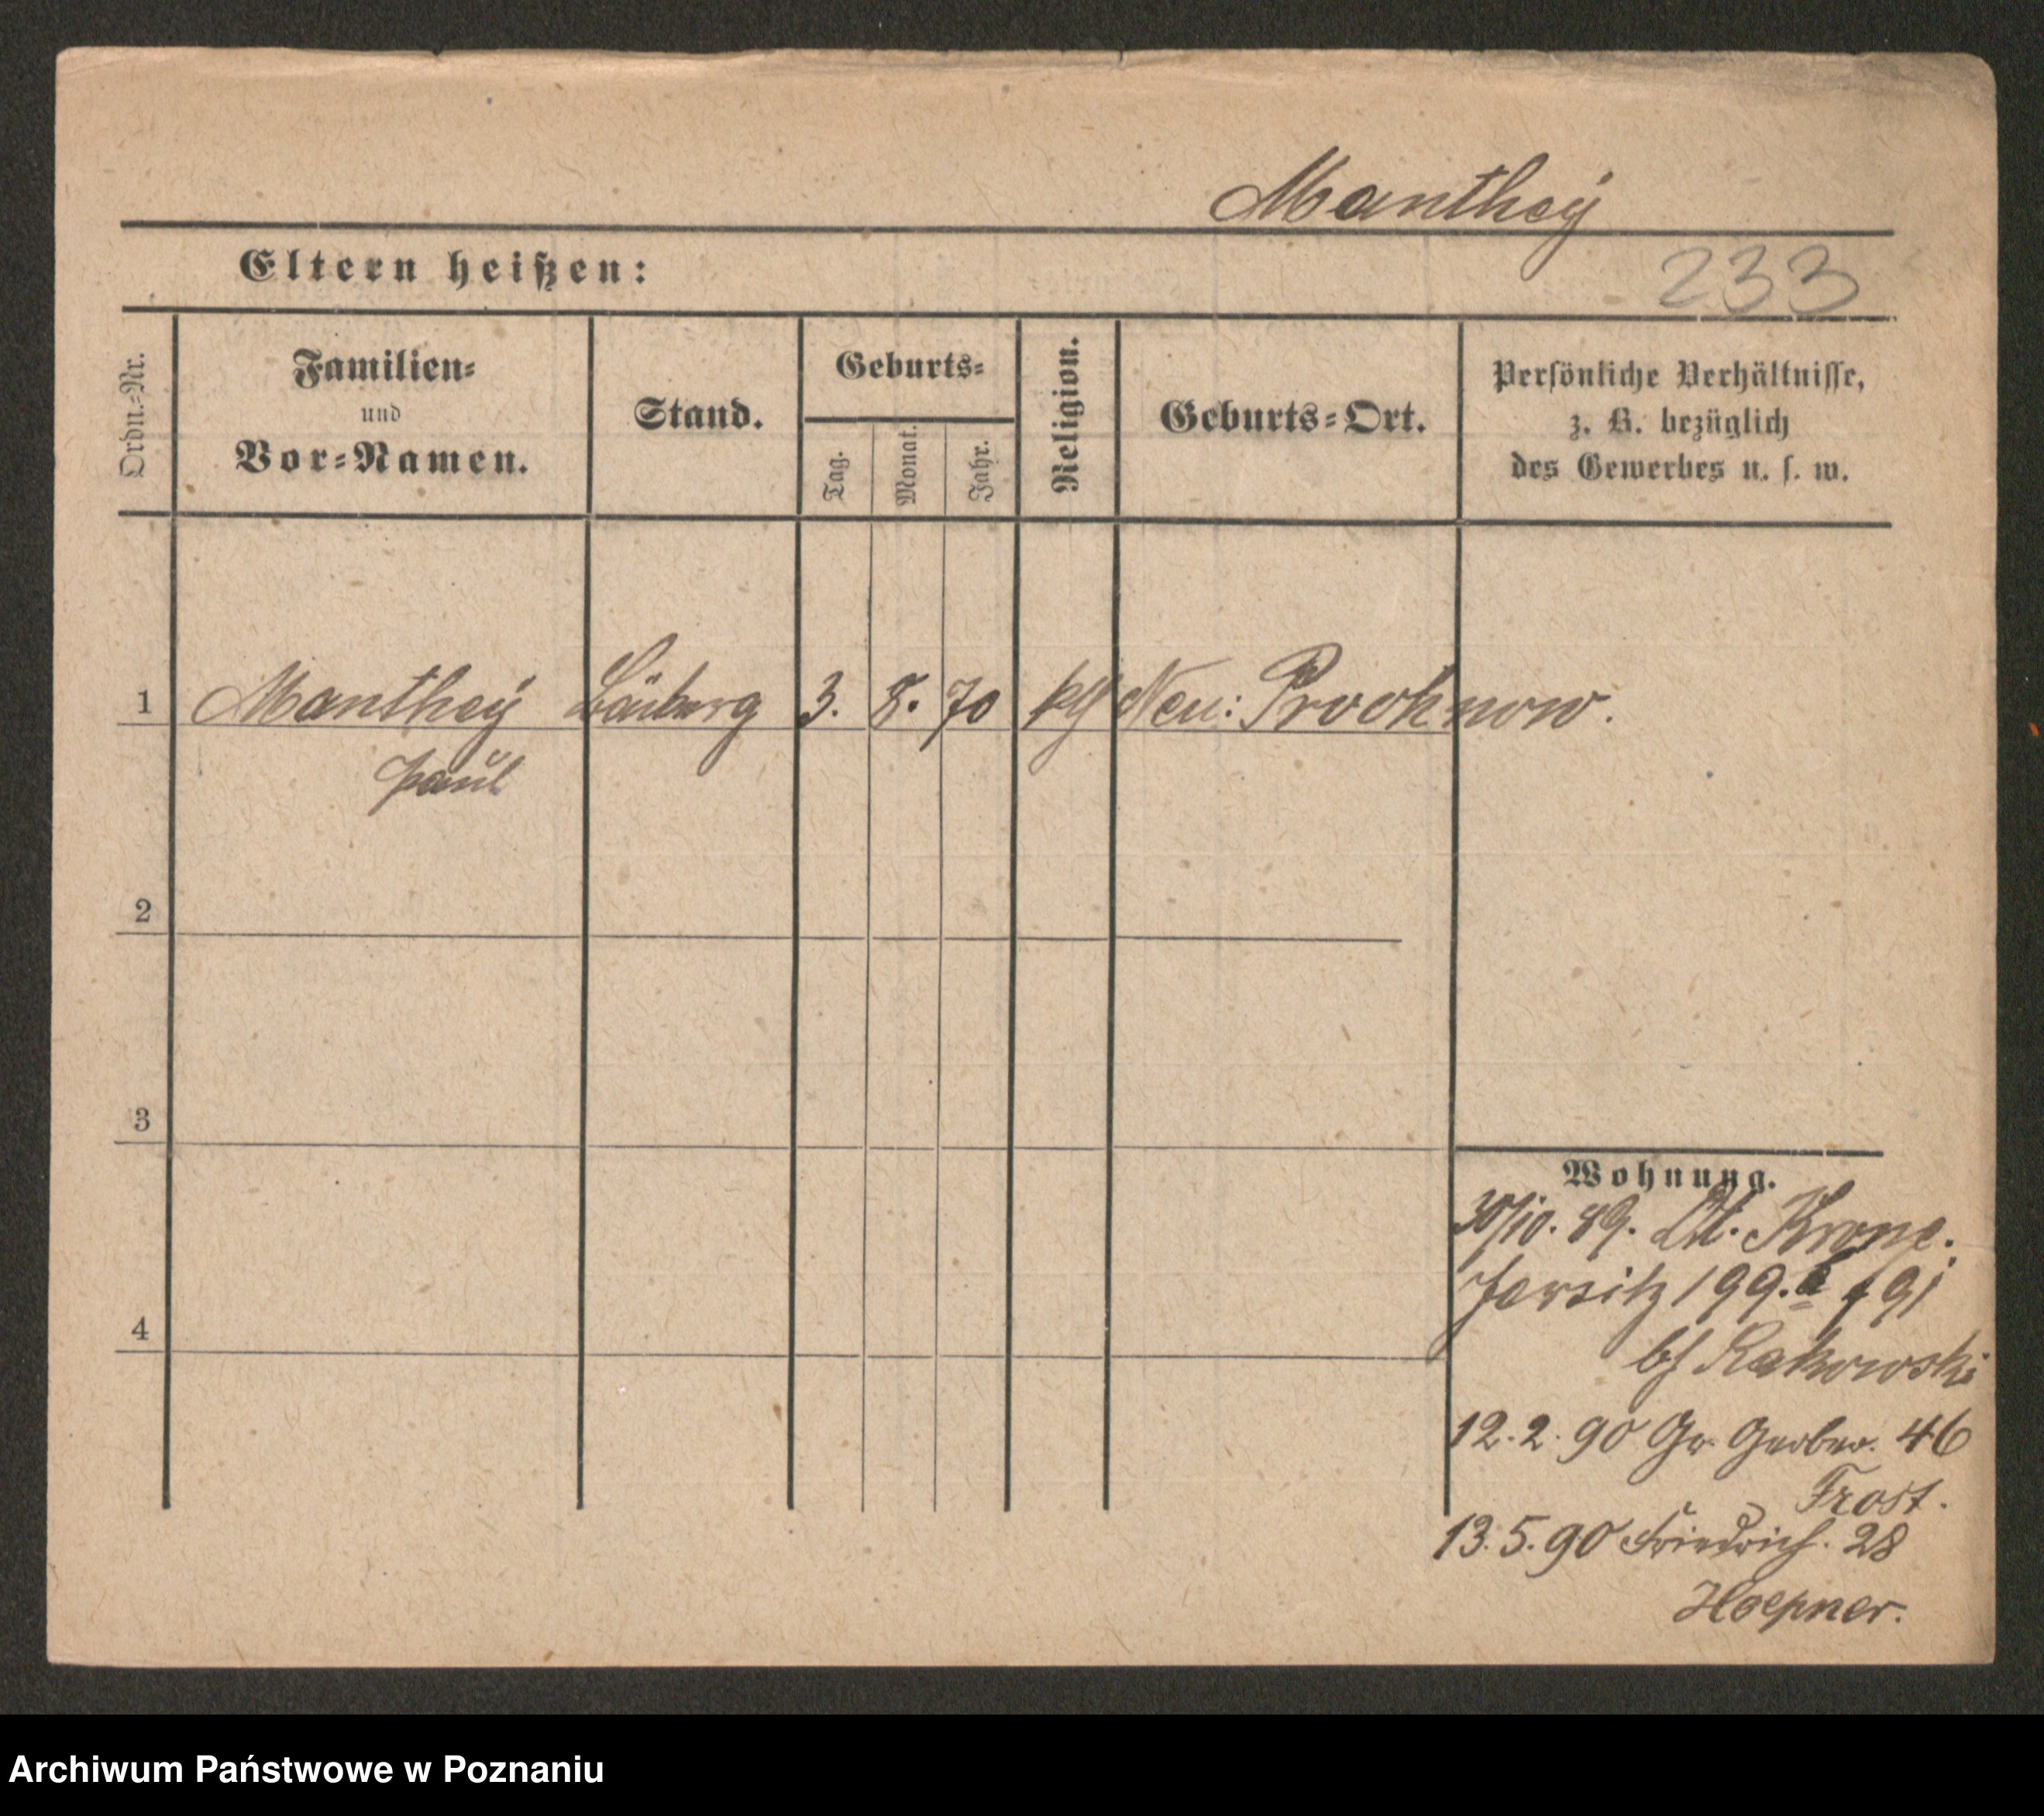 Manthey
Eltern heißen:
233
Ordn.-Nr.
Familien-
und
Vor-Namen.
Stand.
Geburts-
Tag.
Monat.
Jahr.
Religion.
Geburts-Ort.
Persönliche Verhältnisse,
z. B. bezüglich
des Gewerbes u. s. w.
1 Manthey 3. 8. 70 Neu: Prochnow.
Paul
2
3
4
Wohnung.
30/10. 89. Dt. Krone.
Jersitz 199.a 91
b/ Rakowski
12. 2. 90 Gr. Gerber. 46
Frost.
13. 5. 90 Friedrich. 28
Hoepner.
Archiwum Państwowe w Poznaniu